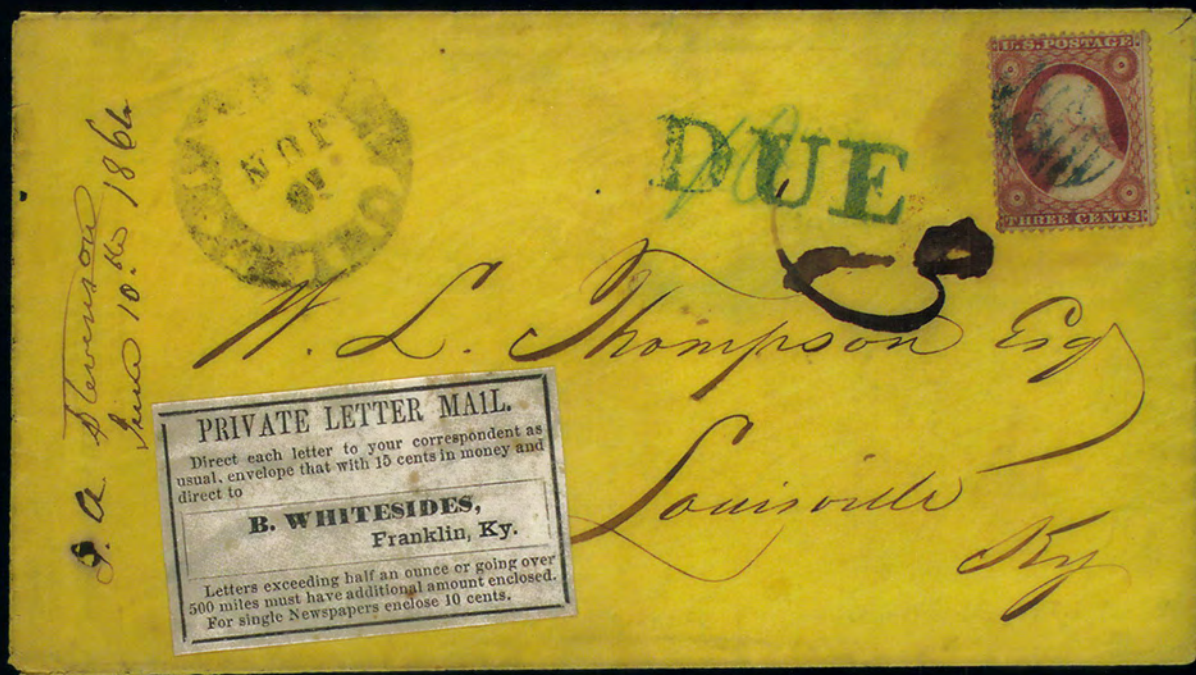 U.S. POSTAGE
THREE CENTS
JUN
DUE
W. L. Thompson Esq
Louisville
Ky
June 10th 186
PRIVATE LETTER MAIL.
Direct each letter to your correspondent as
usual, envelope that with 15 cents in money and
direct to
B. WHITESIDES,
Franklin, Ky.
Letters exceeding half an ounce or going over
500 miles must have additional amount enclosed.
For single Newspapers enclose 10 cents.